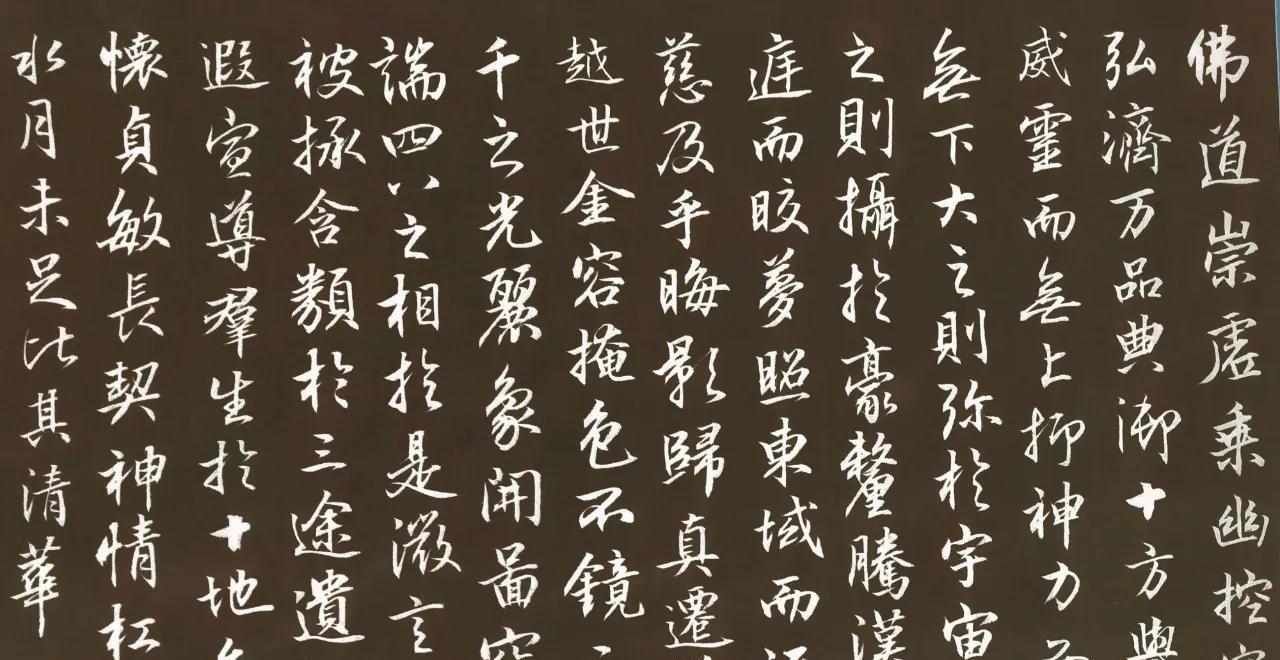 佛道崇虚乘幽控
弘濟万品典御十方舉
威靈而無上抑神力而
無下大之則弥於宇宙
之則攝於豪釐騰漢
庭而皎夢照東域而
慈及乎晦影歸真遷
越世金容掩色不鏡
千之光麗象開圖空
端四八之相於是微言
被拯含類於三途遺
遐宣導群生於十地
懷貞敏長契神情松
水月未足比其清華